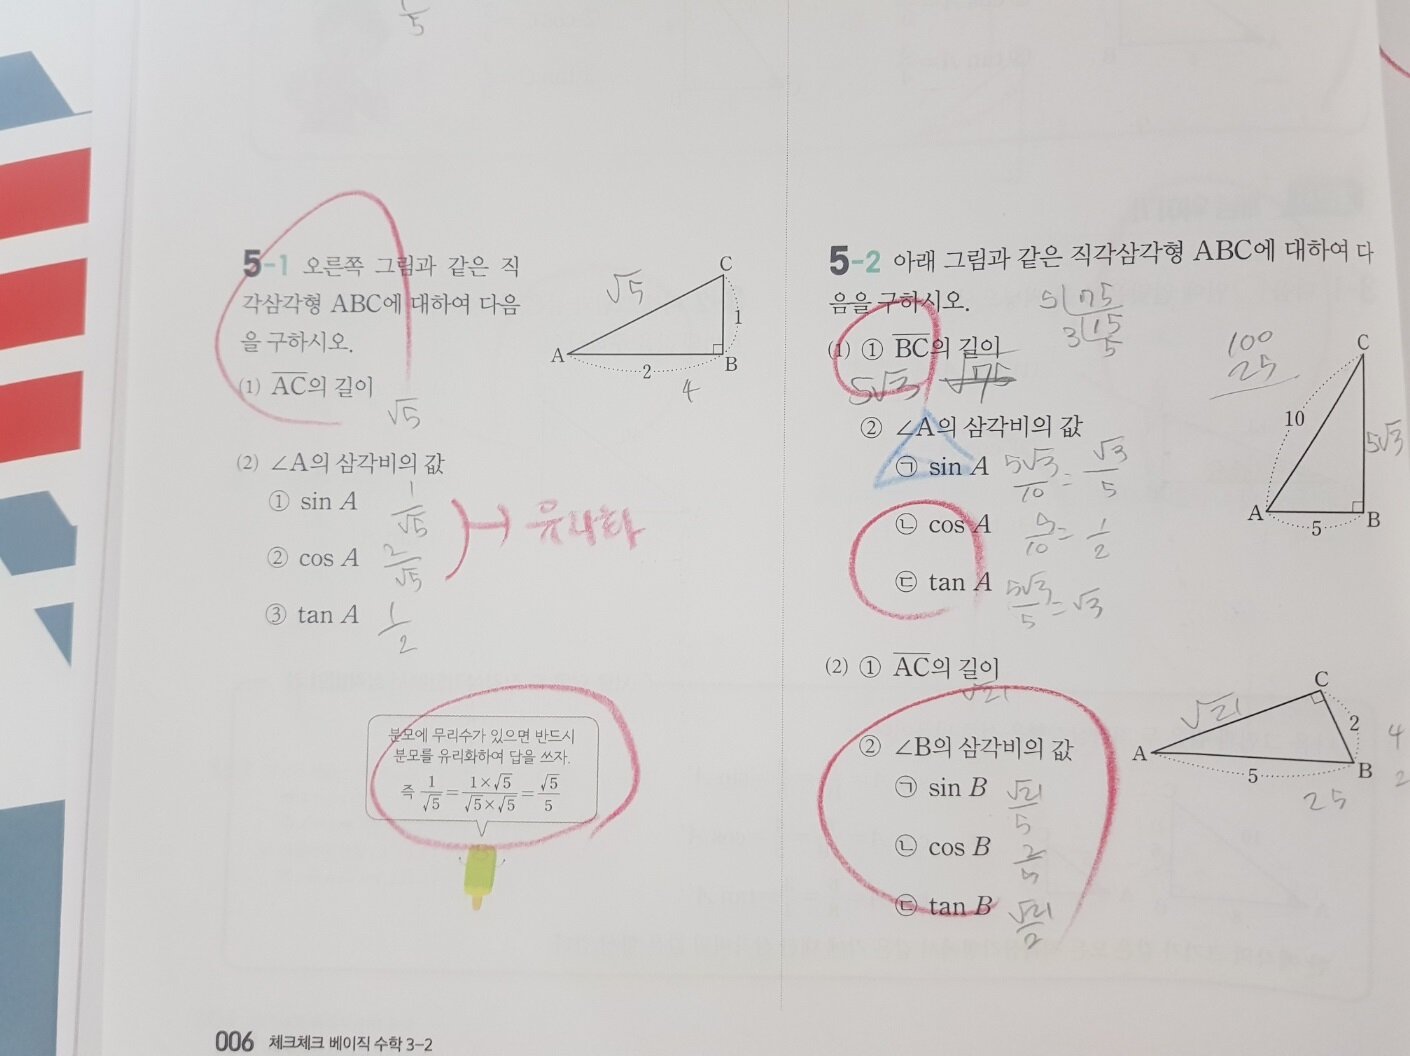 1/5
5-1 오른쪽 그림과 같은 직
각삼각형 ABC에 대하여 다음
을 구하시오.
(1) AC의 길이
√5
(2) ∠A의 삼각비의 값
① sin A 1/√5
② cos A 2/√5
→ 유리화
③ tan A 1/2
C
√5
1
A
B
2
4
분모에 무리수가 있으면 반드시
분모를 유리화하여 답을 쓰자.
즉 1/√5 = 1×√5/√5×√5 = √5/5
5-2 아래 그림과 같은 직각삼각형 ABC에 대하여 다
음을 구하시오.
5 75
3 15
5
(1) ① BC의 길이
5√3 √75
② ∠A의 삼각비의 값
㉠ sin A 5√3/10 = √3/5
㉡ cos A 5/10 = 1/2
㉢ tan A 5√3/5 = √3
100
25
C
10
5√3
A
B
5
(2) ① AC의 길이
√21
② ∠B의 삼각비의 값
㉠ sin B √21/5
㉡ cos B 2/5
㉢ tan B √21/2
C
√21
2
4
A
B
5
2
25
006 체크체크 베이직 수학 3-2